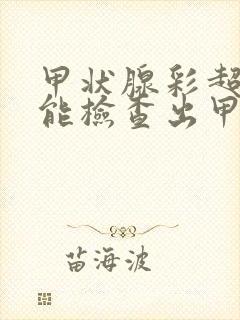 甲状腺彩超
能檢查出甲
苗海波